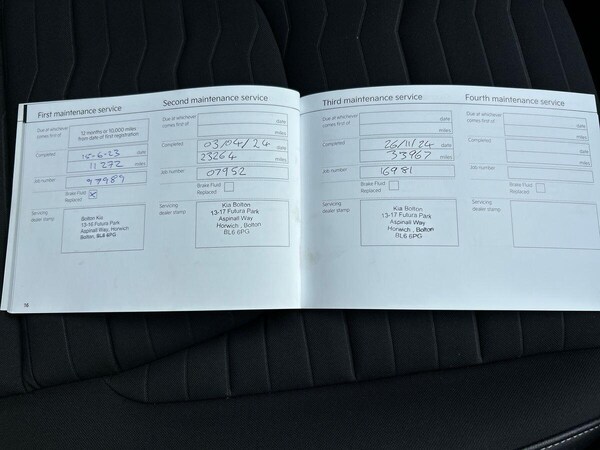 First maintenance service
Due at whichever
comes first of
12 months or 10,000 miles
from date of first registration
Completed
15-6-23 date
11272 miles
Job number
97989
Brake Fluid
Replaced
Servicing
dealer stamp
Bolton Kia
13-16 Futura Park
Aspinall Way, Horwich
Bolton, BL6 6PG
16
Second maintenance service
Due at whichever
comes first of
date
miles
Completed
03/04/24 date
23264 miles
Job number
07952
Brake Fluid
Replaced
Servicing
dealer stamp
Kia Bolton
13-17 Futura Park
Aspinall Way
Horwich, Bolton
BL6 6PG
Third maintenance service
Due at whichever
comes first of
date
miles
Completed
26/11/24 date
33967 miles
Job number
16981
Brake Fluid
Replaced
Servicing
dealer stamp
Kia Bolton
13-17 Futura Park
Aspinall Way
Horwich, Bolton
BL6 6PG
Fourth maintenance service
Due at whichever
comes first of
date
miles
Completed
date
miles
Job number
Brake Fluid
Replaced
Servicing
dealer stamp